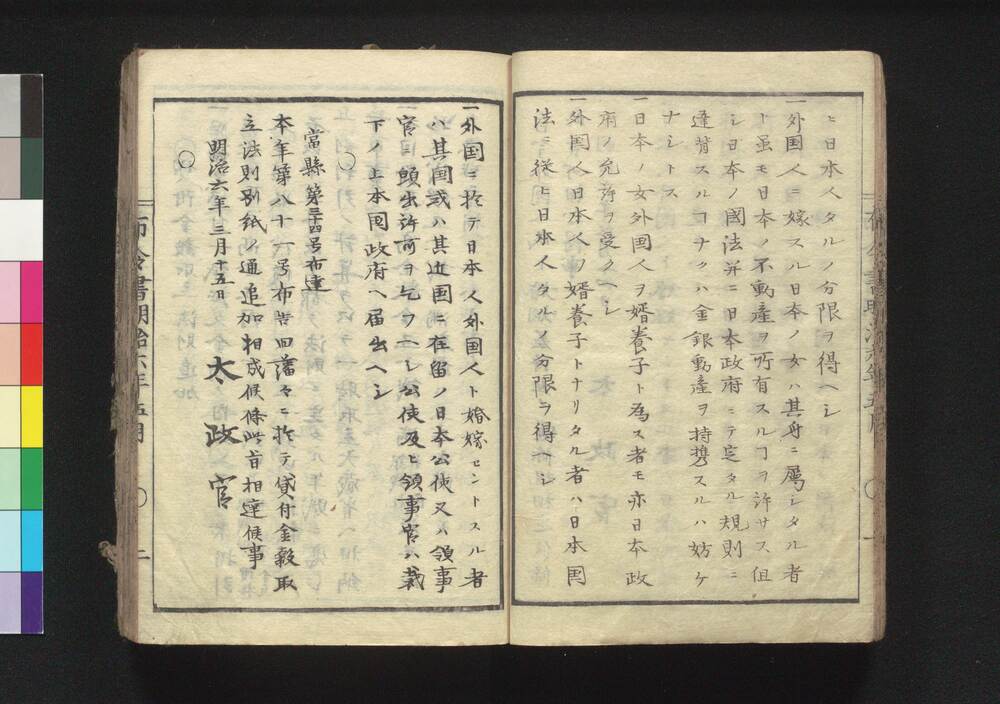 ヒ日本人タルノ分限ヲ得ヘシ
一外国人ニ嫁スル日本ノ女ハ其身ニ属シタル者
ト虽モ日本ノ不動産ヲ所有スルヿヲ許サス但
シ日本ノ國法并ニ日本政府ニテ定タル規則ニ
違背スルヿナクハ金銀動產ヲ持携スルハ妨ケ
ナシトス
一日本ノ女外国人ヲ婿養子ト為ス者モ亦日本政
府ノ允許ヲ受クヘシ
一外国人日本人ノ婿養子トナリタル者ハ日本国
法ニ從ヒ日本人タルノ分限ヲ得ヘシ
一外国ニ於テ日本人外国人ト婚嫁セントスル者
ハ其国或ハ其近国ニ在留ノ日本公使又ハ領事
官ニ願出許可ヲ乞フヘシ公使及ヒ領事官ハ裁
下ノ上本国政府ヘ届出ヘシ
○
當縣第三十四号布達
本年第八十一号布告旧藩々ニ於テ貸付金穀取
立法則別紙ノ通追加相成候條此旨相達候事
明治六年三月十五日 太政官
○
布令書明治六年五月 ○ 二